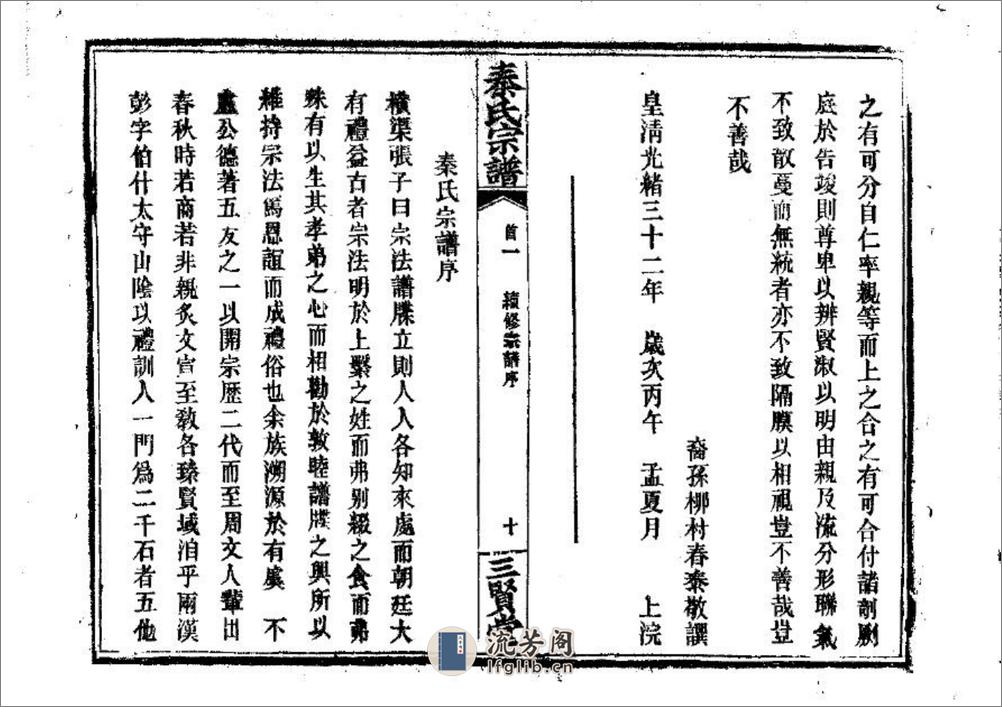 之有可分自仁率親等而上之合之有可合付諸剞劂
庭於告竣則尊卑以辨賢淑以明由親及流分形聯氣
不致散蔓而無統者亦不致隔膜以相視豈不善哉豈
不善哉
裔孫柳村春泰敬譔
皇淸光緒三十二年 歲次丙午 孟夏月 上浣
秦氏宗譜
首一 續修宗譜序 十
三賢堂
秦氏宗譜序
橫渠張子曰宗法譜牒立則人人各知來處而朝廷大
有禮益古者宗法明於上繫之姓而弗别綴之食而弗
殊有以生其孝弟之心而相勸於敦睦譜牒之興所以
維持宗法爲恩誼而成禮俗也余族溯源於有虞 不
虛公德著五友之一以開宗歷二代而至周文人輩出
春秋時若商若非親炙文宣至敎各臻賢域洎乎兩漢
彭字伯什太守山陰以禮訓人一門爲二千石者五他
流芳阁
lfglib.cn